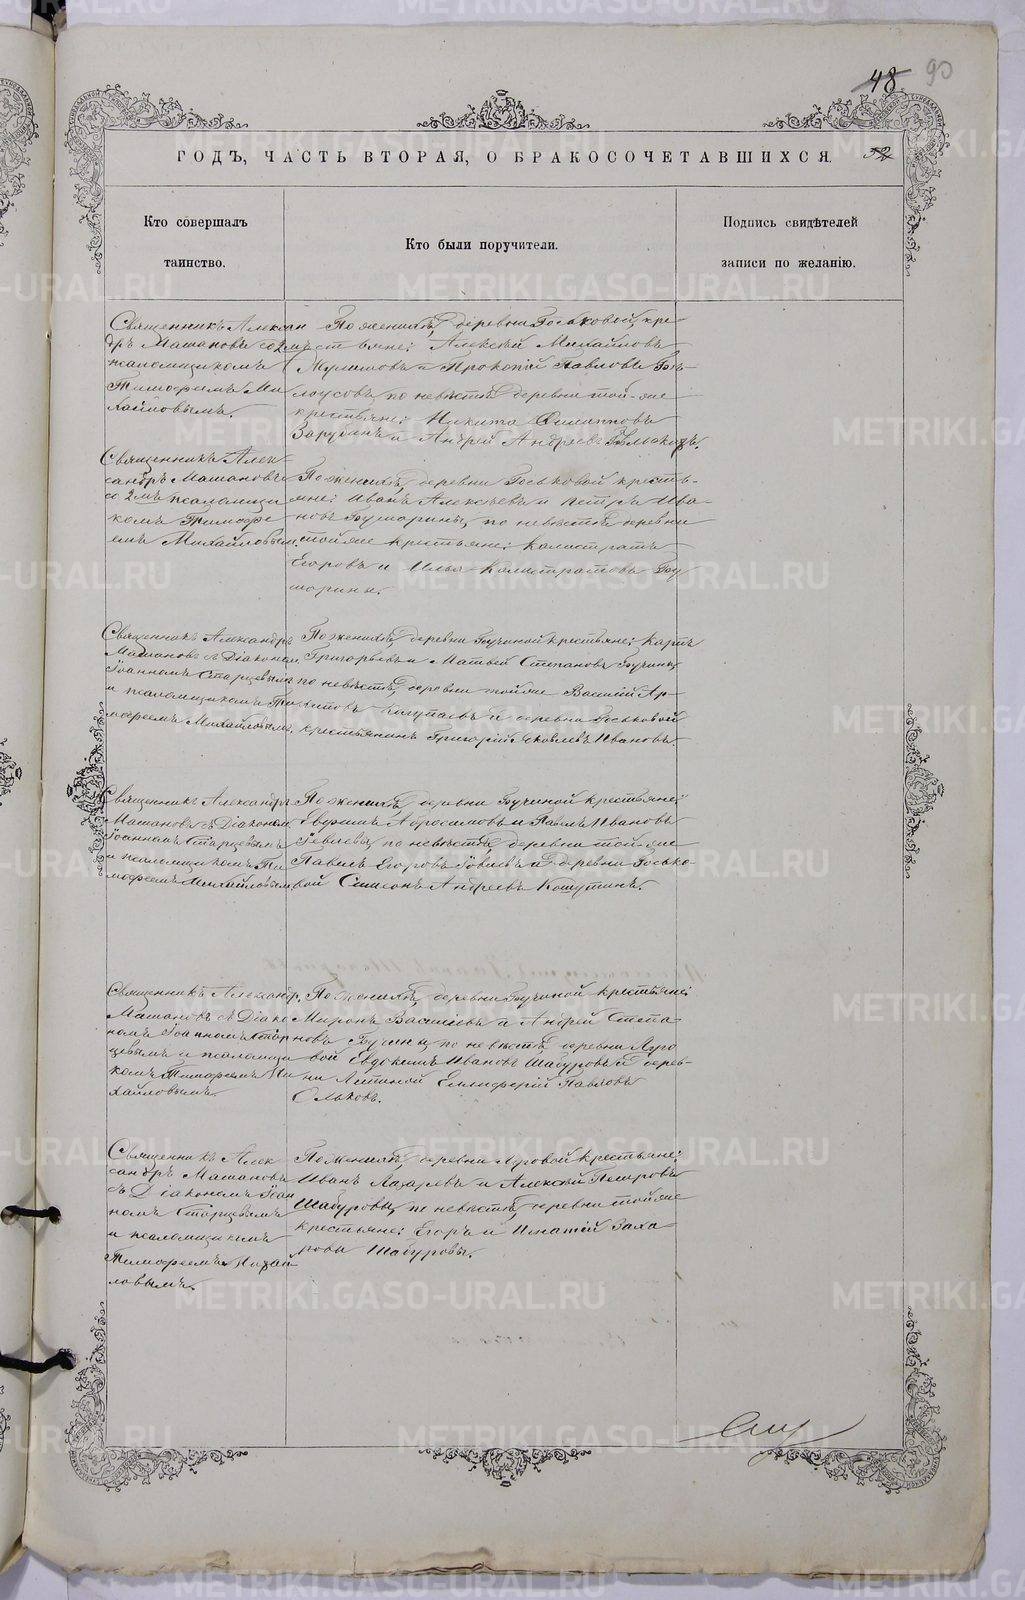 48 90
ГОДЪ, ЧАСТЬ ВТОРАЯ, О БРАКОСОЧЕТАВШИХСЯ. 52
Кто совершалъ
таинство.
Кто были поручители.
Подпись свидѣтелей
записи по желанію.
Священникъ Алексан
дръ Машановъ со 2мъ
псаломщикомъ
Тимофеемъ Ми
хайловымъ.
По женихѣ, деревни Госьковой, кре-
стьяне: Алексѣй Михайловъ
и Прокопій Павловъ Бѣ-
лоусовъ, по невѣстѣ, деревни той-же
крестьяне: Никита Филипповъ
Зарубинъ и Андрей Андреевъ
Священникъ Алек-
сандръ Машановъ
со 2мъ псаломщи
комъ Тимофе
емъ Михайловымъ.
По женихѣ, деревни Госьковой кресть-
яне: Иванъ Алексѣевъ и Петръ Ива-
новъ Бушарины, по невѣстѣ деревни
той же крестьяне: Калистратъ
Егоровъ и Илья Калистратовъ Бу
шарины.
Священникъ Александръ
Машановъ съ Діакономъ
Іоанномъ Старцевымъ
и псаломщикомъ Ти
мофеемъ Михайловымъ.
По женихѣ, деревни Бучиной крестьяне: Карпъ
Григорьевъ и Матвей Степановъ Бучины,
по невѣстѣ, деревни той же Василій Ар-
хиповъ и деревни Госьковой
крестьянинъ Григорій Яковлевъ Ивановъ.
Священникъ Александръ
Машановъ съ Діакономъ
Іоанномъ Старцевымъ
и псаломщикомъ Ти
мофеемъ Михайловымъ
По женихѣ, деревни Бучиной крестьяне:
Ефимъ Абросимовъ и Павелъ Ивановъ
по невѣстѣ, деревни той-же
Павелъ Егоровъ и деревни Госько-
вой Симеонъ Андреевъ Кошутинъ.
Священникъ Александр.
Машановъ съ Діако
номъ Іоанномъ Стар
цевымъ и псаломщи
комъ Тимофеемъ Ми
хайловымъ.
По женихѣ, деревни Бучиной крестьяне:
Миронъ Васильевъ и Андрей Степа-
новъ Бучины, по невѣстѣ деревни Луго
вой Евдокимъ Ивановъ Шабуровъ и дерев-
ни Елиферій Павловъ
Ольковъ.
Священникъ Алек
сандръ Машановъ
съ Діакономъ Іоан
номъ Старцевымъ
и псаломщикомъ
Тимофеемъ Михай
ловымъ.
По женихѣ, деревни Луговой крестьяне:
Иванъ Лазаревъ и Алексѣй Петровъ
Шабуровы, по невѣстѣ, деревни той же
крестьяне: Егоръ и Игнатій Заха
ровы Шабуровы.
METRIKI.GASO-URAL.RU